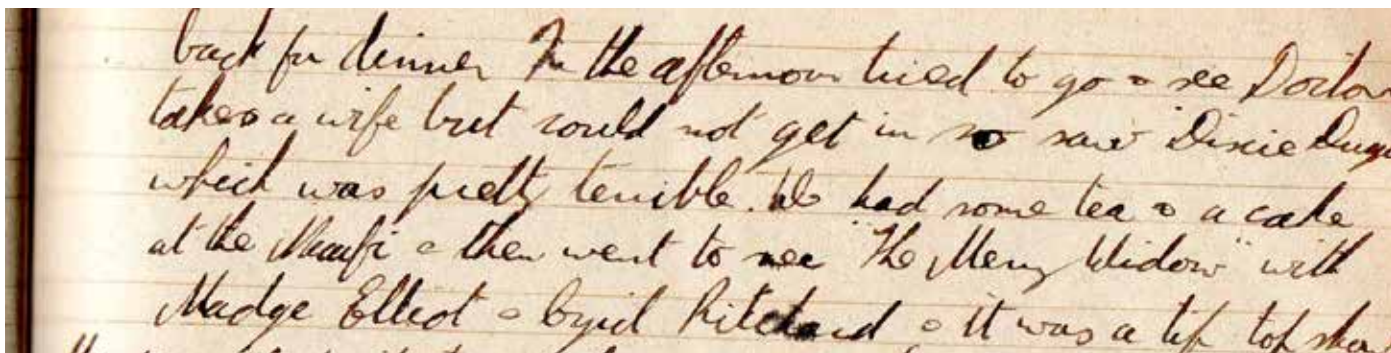 back for dinner In the afternoon tried to go & see Doctor
takes a wife but could not get in so saw Dixie Dugan
which was pretty terrible. We had some tea & a cake
at the & then went to see "The Merry Widow" with
Madge Elliot & Cyril Ritchard & it was a tip top show